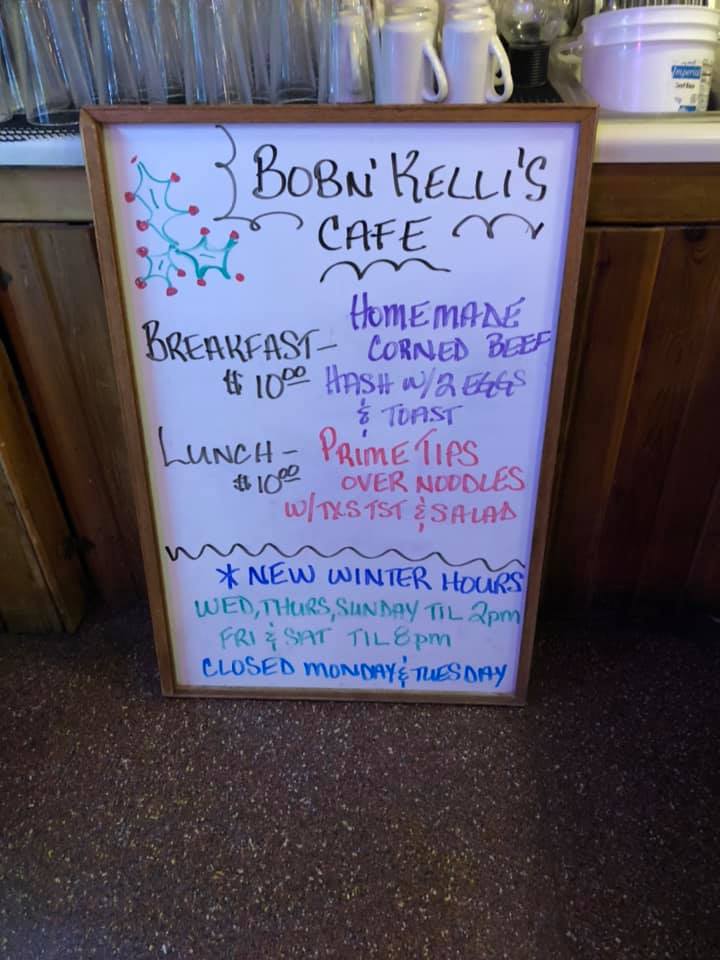 BOBN' KELLI'S
CAFE
HOMEMADE
BREAKFAST- CORNED BEEF
$10⁰⁰ HASH W/2 EGGS
& TOAST
LUNCH- PRIME TIPS
$10⁰⁰ OVER NOODLES
W/TXS TST & SALAD
* NEW WINTER HOURS
WED, THURS, SUNDAY TIL 2pm
FRI & SAT TIL 8pm
CLOSED MONDAY & TUESDAY
Imperial